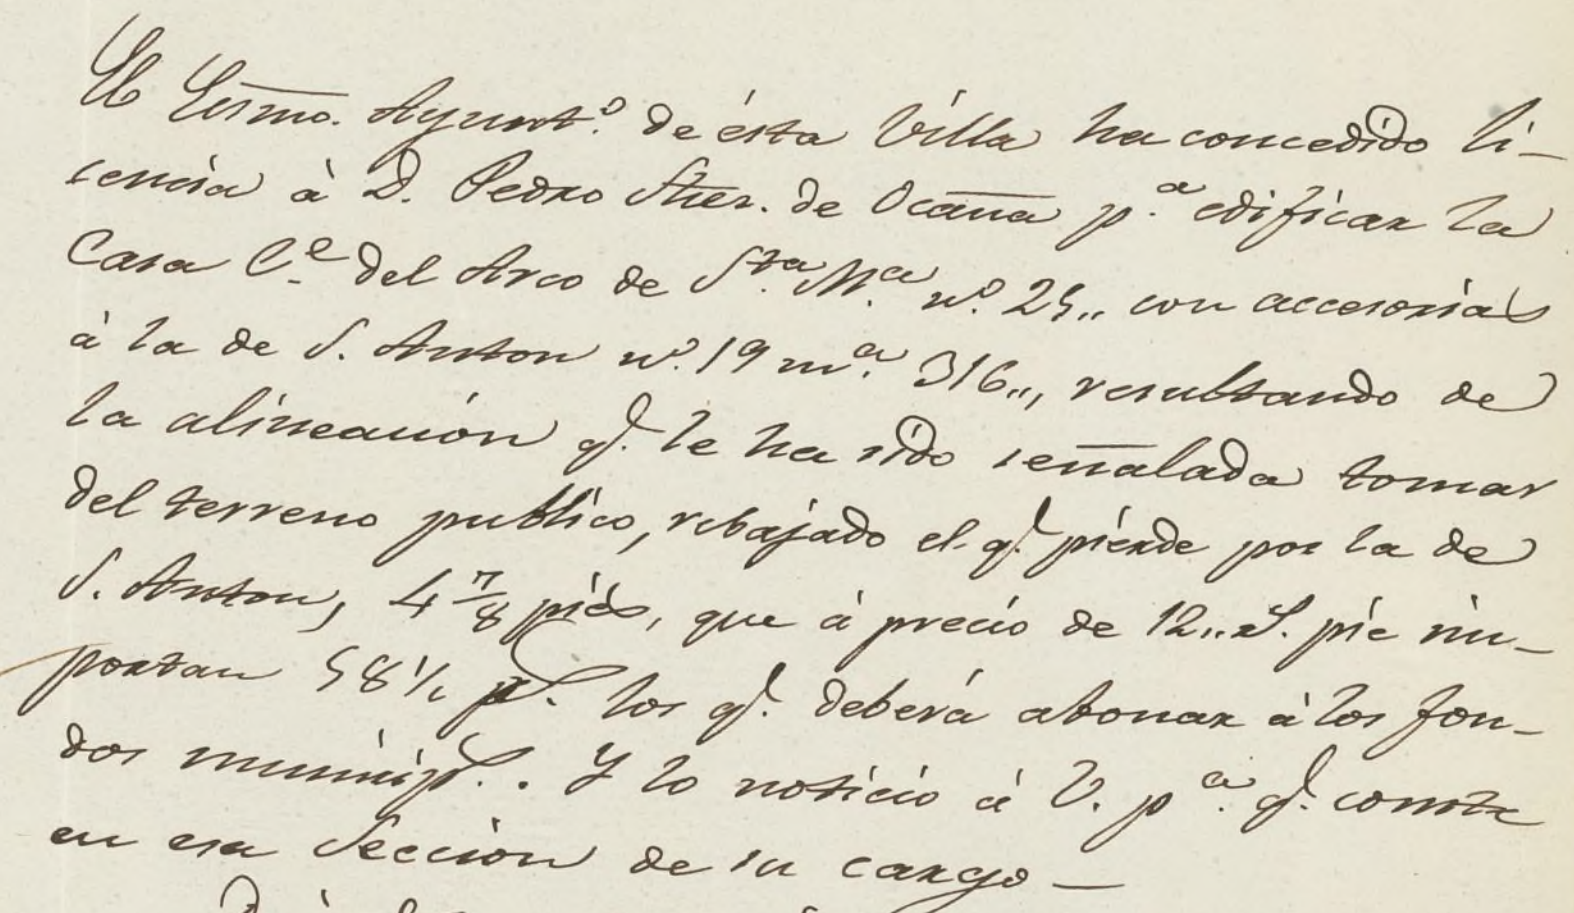 El Escmo. Ayunt.º de ésta Villa ha concedido li-
cencia à D. Pedro de Ocaña p.ª edificar la
Casa C.e del Arco de S.ta M.ª nº. 25,, con accesorias
à la de S. Anton nº. 19 m.ª 316,,, resultando de
la alineación q.e le ha sido señalada tomar
del terreno publico, rebajado el q.e piérde por la de
S. Anton, 4 7/8 piés, que à precio de 12,, rs. pie im-
portan 58 1/2 los q.e deberá abonar à los fon-
dos municip.s. Y lo noticio à V. p.ª q.e conste
en esa Seccion de su cargo —